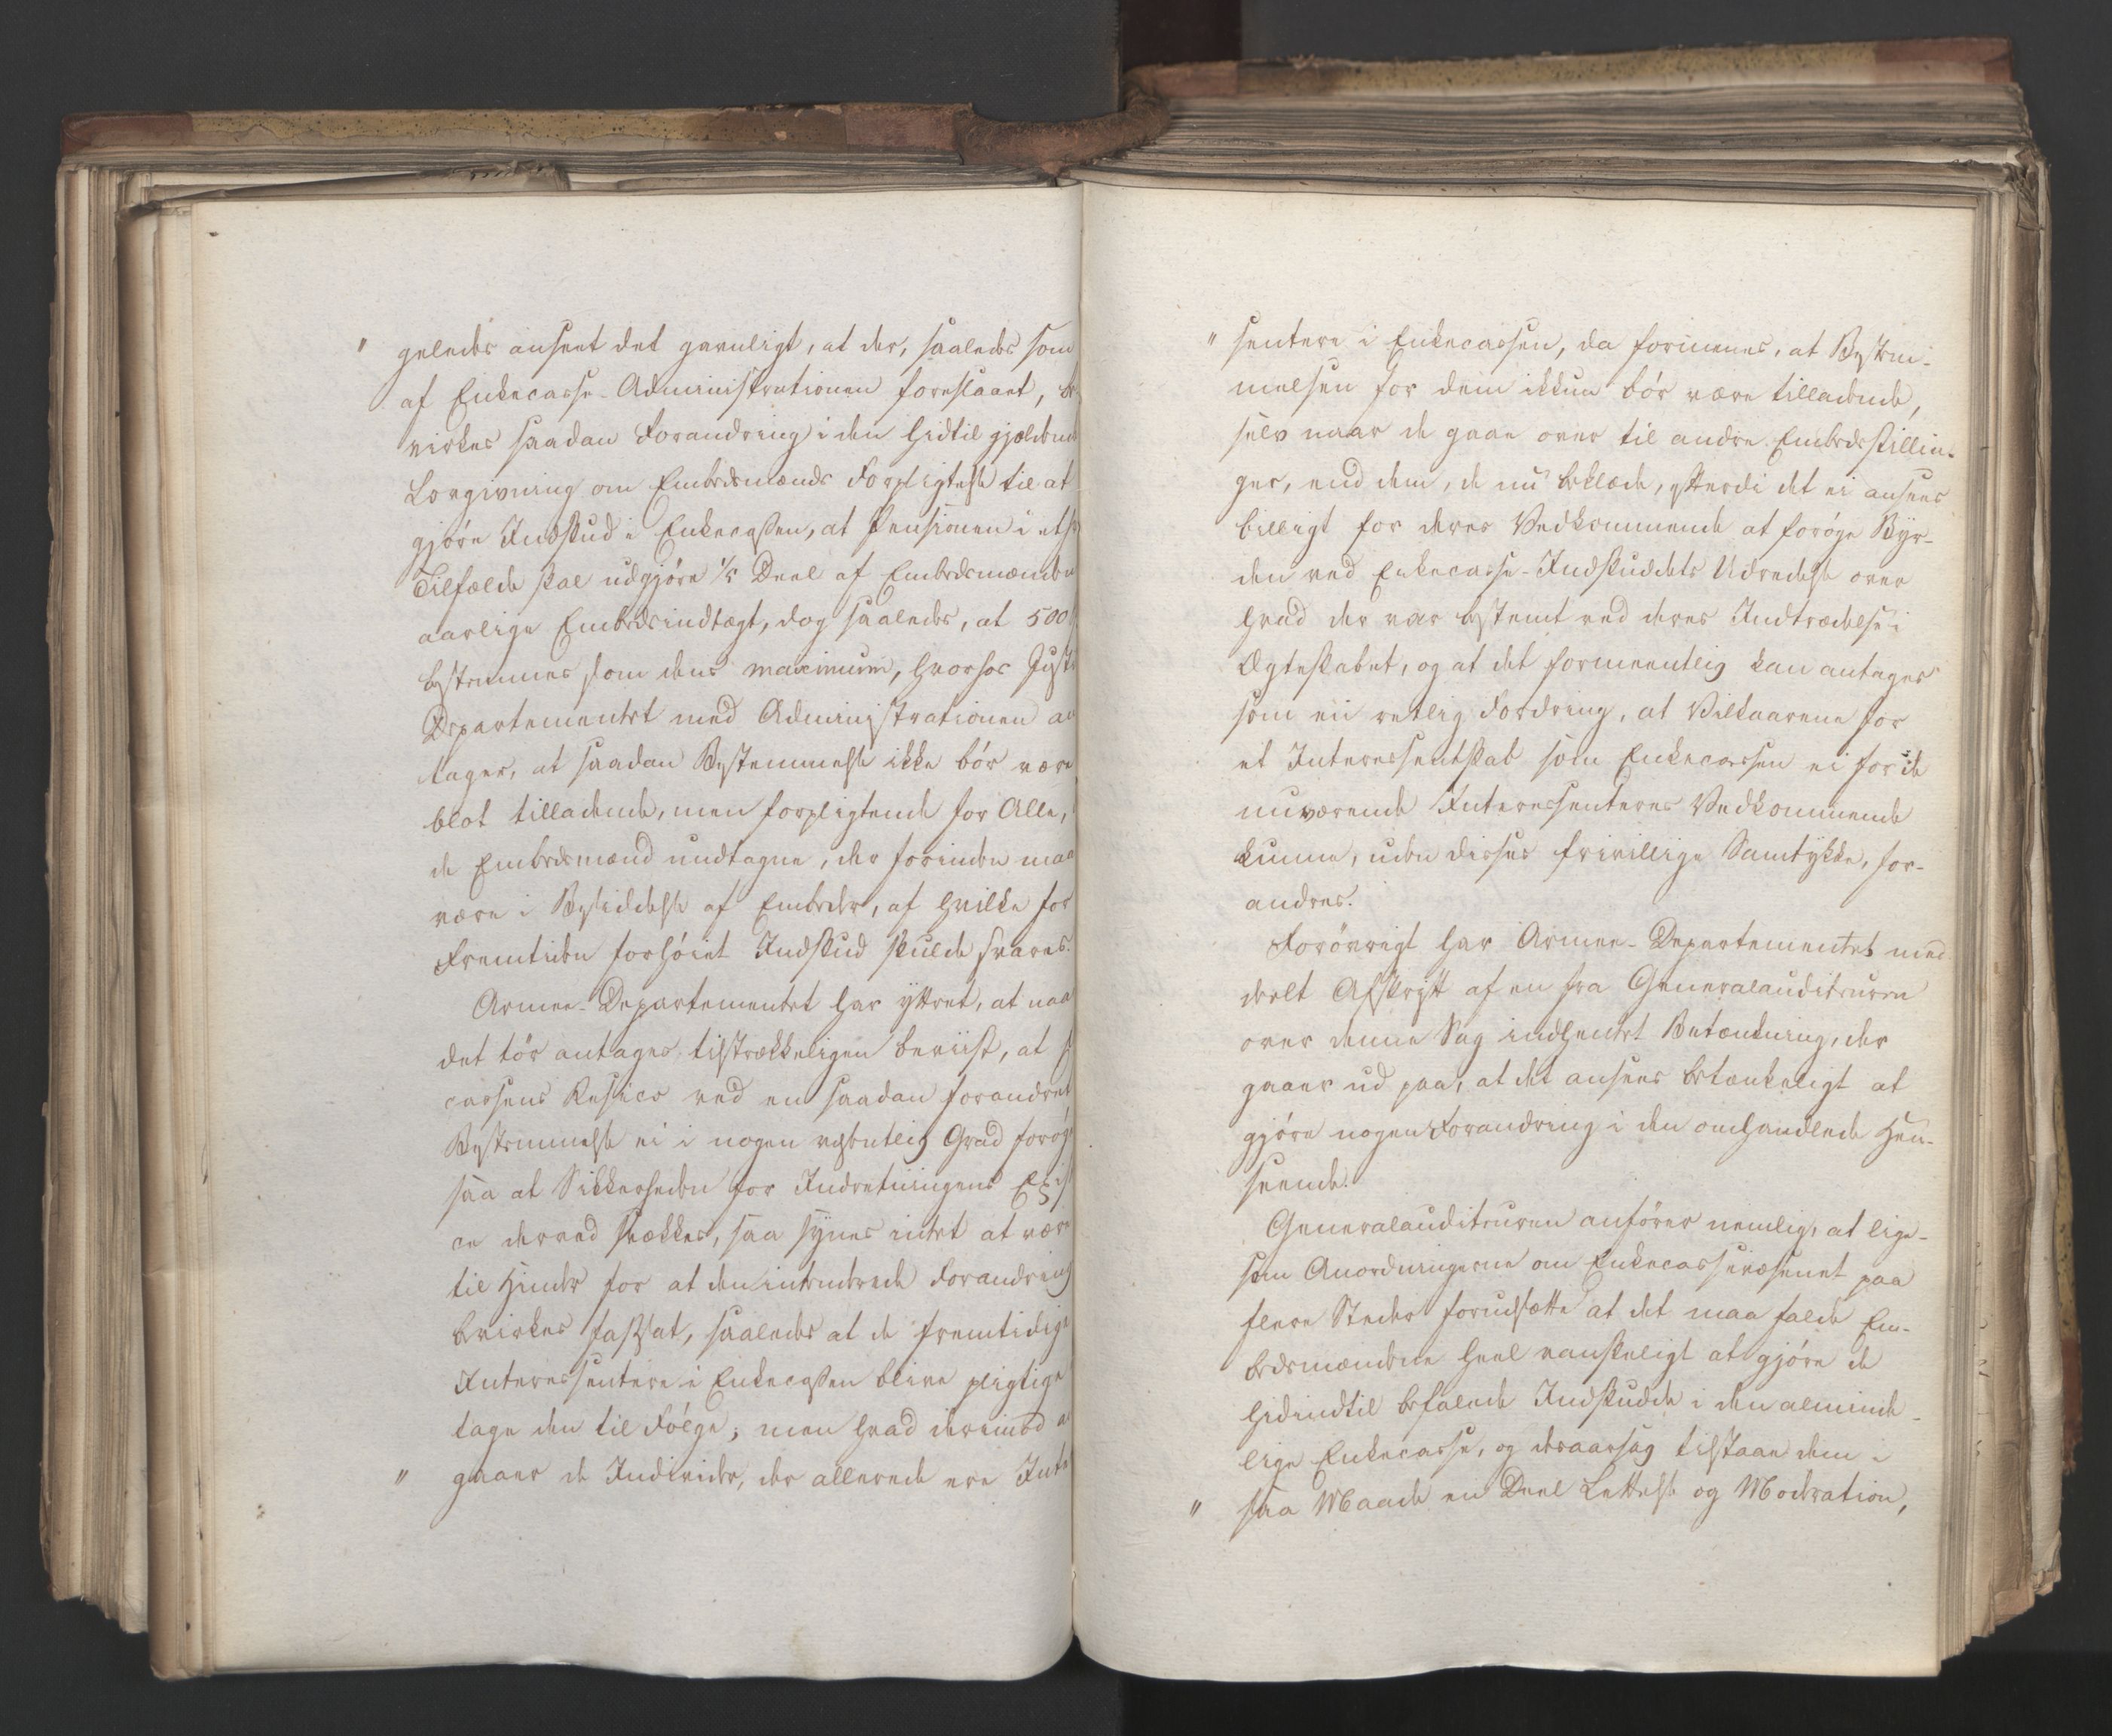 " geleder anseet det gavnligt, at der, saaledes som
af Enkecasse-Administrationen foreslaaet, be
virkes saadan Forandring i den hidtil gjældende
Lovgivning om Embedsmænds Forpligtelse til at
gjøre Indskud i Enkecassen, at Pensionen i ethv
Tilfælde skal udgjøre 1/5 Deel af Embedsmanden
aarlige Embedsindtægt, dog saaledes, at 500
bestemmes som dens maximum, hvorhos Justi
Departementet med Administrationen an
tager, at saadan Bestemmelse ikke bør være
blot tilladende, men forpligtende for Alle,
de Embedsmænd undtagne, der forinden maa
være i Besiddelse af Embeder, af hvilke for
Fremtiden forhøiet Indskud skulde svares.
Armee-Departementet har yttret, at naa
det tør antages tilstrækkeligen beviist, at
cassens Risico ved en saadan forandret
Bestemmelse ei i nogen væsentlig Grad forøge
saa at Sikkerheden for Indretningens Exist
ce derved svækkes, saa synes intet at være
til Hinder for at den intenderede Forandring
bevirkes fastsat, saaledes at de fremtidige
Interessentere i Enkecassen blive pligtige
tage den til Følge; men hvad derimod a
" gaaer de Individer, der allerede ere Inte
" sentere i Enkecassen, da formenes, at Bestem-
melsen for dem ikkun bør være tilladende,
selv naar de gaae over til andre Embedsstillin-
ger, end dem, de nu beklæde, efterdi det ei ansees
billigt for deres Vedkommende at forøge Byr-
den ved Enkecasse-Indskuddets Udredelse over
hvad der var bestemt ved deres Indtrædelse i
Ægteskabet, og at det formeentlig kan antages
som en retlig Fordring, at Vilkaarene for
et Interessentskab som Enkecassen ei for de
nuværende Interessenteres Vedkommende
kunne, uden disses frivillige Samtykke, for-
andres.
Forøvrigt har Armee-Departementet med
deelt Afskrift af en fra Generalauditeuren
over denne Sag indhentet Betænkning, der
gaaer ud paa, at det ansees betænkeligt at
gjøre nogen Forandring i den omhandlede Hen-
seende.
Generalauditeuren anfører nemlig, at lige-
som Anordningerne om Enkecassevæsenet paa
flere Steder forudsætte at det maa falde Em-
bedsmændene heel vanskeligt at gjøre de
hidindtil befalede Indskudde i den alminde-
lige Enkecasse, og desaarsag tilstaae dem i
" saa Maade en Deel Lettelse og Moderation,